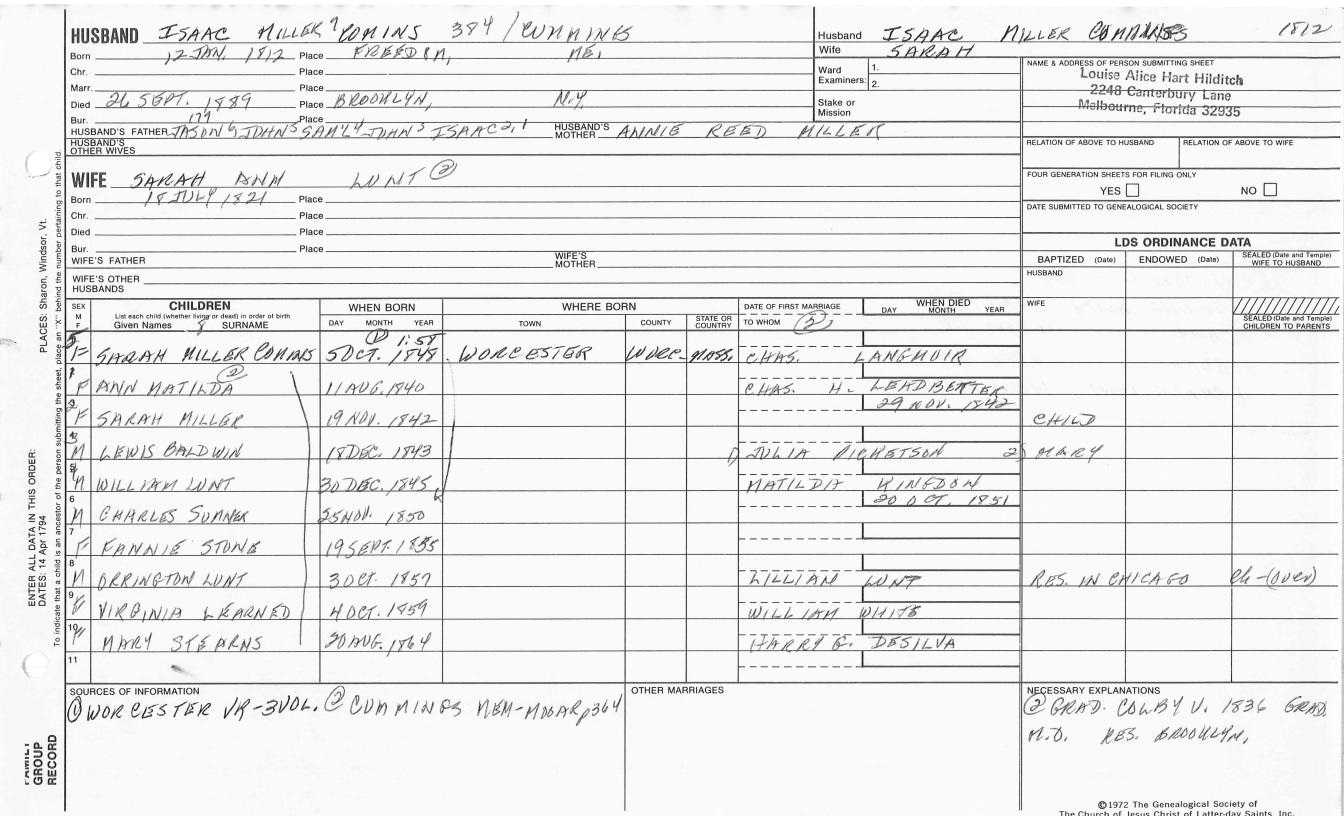 HUSBAND ISAAC MILLER 7 COMINS 384 / CUMMINGS
Born 12 JAN. 1812 Place FREEDOM, ME.
Chr. Place
Marr. Place
Died 26 SEPT. 1889 Place BROOKLYN, N.Y.
Bur. Place
HUSBAND'S FATHER JASON 6 JOHN 5 SAML 4 JOHN 3 ISAAC 2,1 HUSBAND'S MOTHER ANNIE REED MILLER
HUSBAND'S OTHER WIVES
WIFE SARAH ANN LUNT ②
Born 18 JULY 1821 Place
Chr. Place
Died Place
Bur. Place
WIFE'S FATHER WIFE'S MOTHER
WIFE'S OTHER HUSBANDS
Husband ISAAC MILLER 1812
Wife SARAH
Ward Examiners: 1. 2.
Stake or Mission
NAME & ADDRESS OF PERSON SUBMITTING SHEET
Louise Alice Hart Hilditch
2248 Canterbury Lane
Melbourne, Florida 32935
RELATION OF ABOVE TO HUSBAND RELATION OF ABOVE TO WIFE
FOUR GENERATION SHEETS FOR FILING ONLY
YES NO
DATE SUBMITTED TO GENEALOGICAL SOCIETY
LDS ORDINANCE DATA
BAPTIZED (Date) ENDOWED (Date) SEALED (Date and Temple) WIFE TO HUSBAND
HUSBAND
WIFE
SEALED (Date and Temple) CHILDREN TO PARENTS
SEX M F CHILDREN WHEN BORN WHERE BORN DATE OF FIRST MARRIAGE WHEN DIED
List each child (whether living or dead) in order of birth
Given Names SURNAME DAY MONTH YEAR TOWN COUNTY STATE OR COUNTRY TO WHOM ② DAY MONTH YEAR
① 1:58
5 F SARAH MILLER COMINS 5 OCT. 1848 WORCESTER WORC- MASS. CHAS. LANGMUIR
②
1 F ANN MATILDA 11 AUG. 1840 CHAS. H. LEADBETTER
2 F SARAH MILLER 19 NOV. 1842 29 NOV. 1842 CHILD
3 M LEWIS BALDWIN 18 DEC. 1843 1) JULIA RICKETSON 2) MARY
M WILLIAM LUNT 30 DEC. 1845 MATILDA KINGDON
6 M CHARLES SUMNER 25 NOV. 1850 20 OCT. 1851
7 F FANNIE STONE 19 SEPT. 1855
8 M ORRINGTON LUNT 3 OCT. 1857 LILLIAN LUNT RES. IN CHICAGO Ch-(over)
9 F VIRGINIA LEARNED 4 OCT. 1859 WILLIAM WHITE
10 F MARY STEARNS 20 AUG. 1864 HARRY G. DESILVA
11
SOURCES OF INFORMATION
① WORCESTER VR-3VOL. ② CUMMINGS MEM-MOOAR p364
OTHER MARRIAGES
NECESSARY EXPLANATIONS
② GRAD. COLBY U. 1836 GRAD.
M.D. RES. BROOKLYN,
©1972 The Genealogical Society of
The Church of Jesus Christ of Latter-day Saints, Inc.
PLACES: Sharon, Windsor, Vt.
ENTER ALL DATA IN THIS ORDER:
DATES: 14 Apr 1794
To indicate that a child is an ancestor of the person submitting the sheet, place an "X" behind the number pertaining to that child.
FAMILY GROUP RECORD